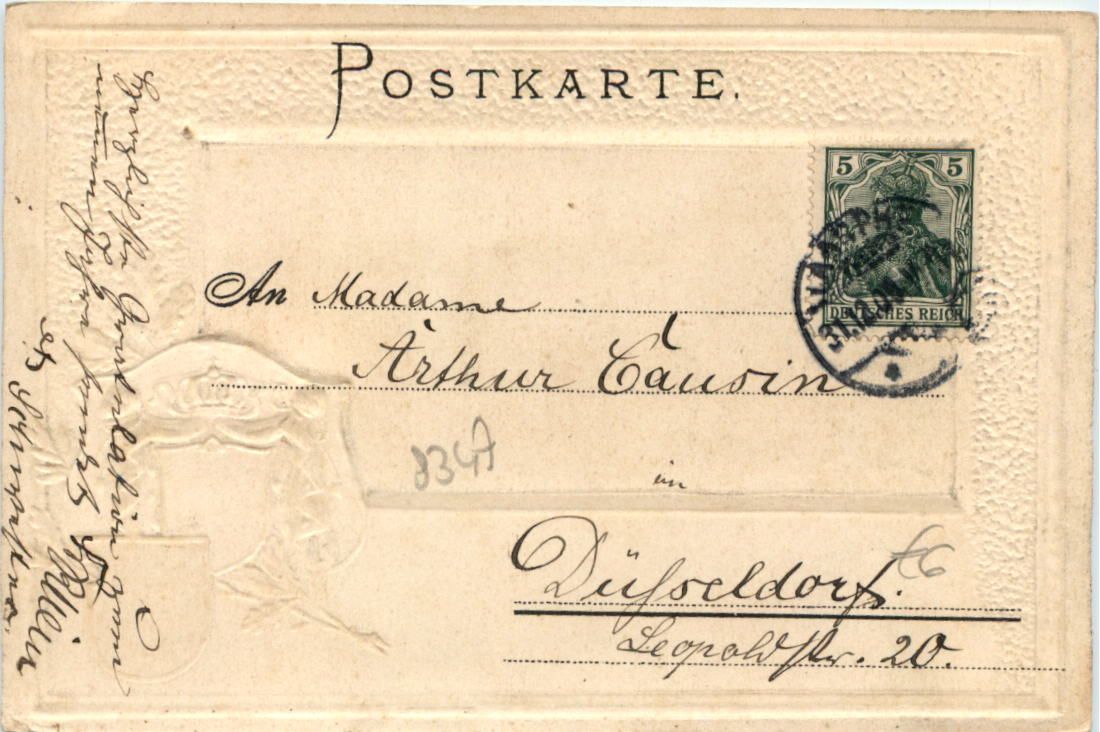 POSTKARTE.
5 5
DEUTSCHES REICH
An Madame
Arthur Causin
in
Düsseldorf.
Leopoldstr. 20.
834A
€6
Herzlichste Gratulation zum
neuen Jahre sendet